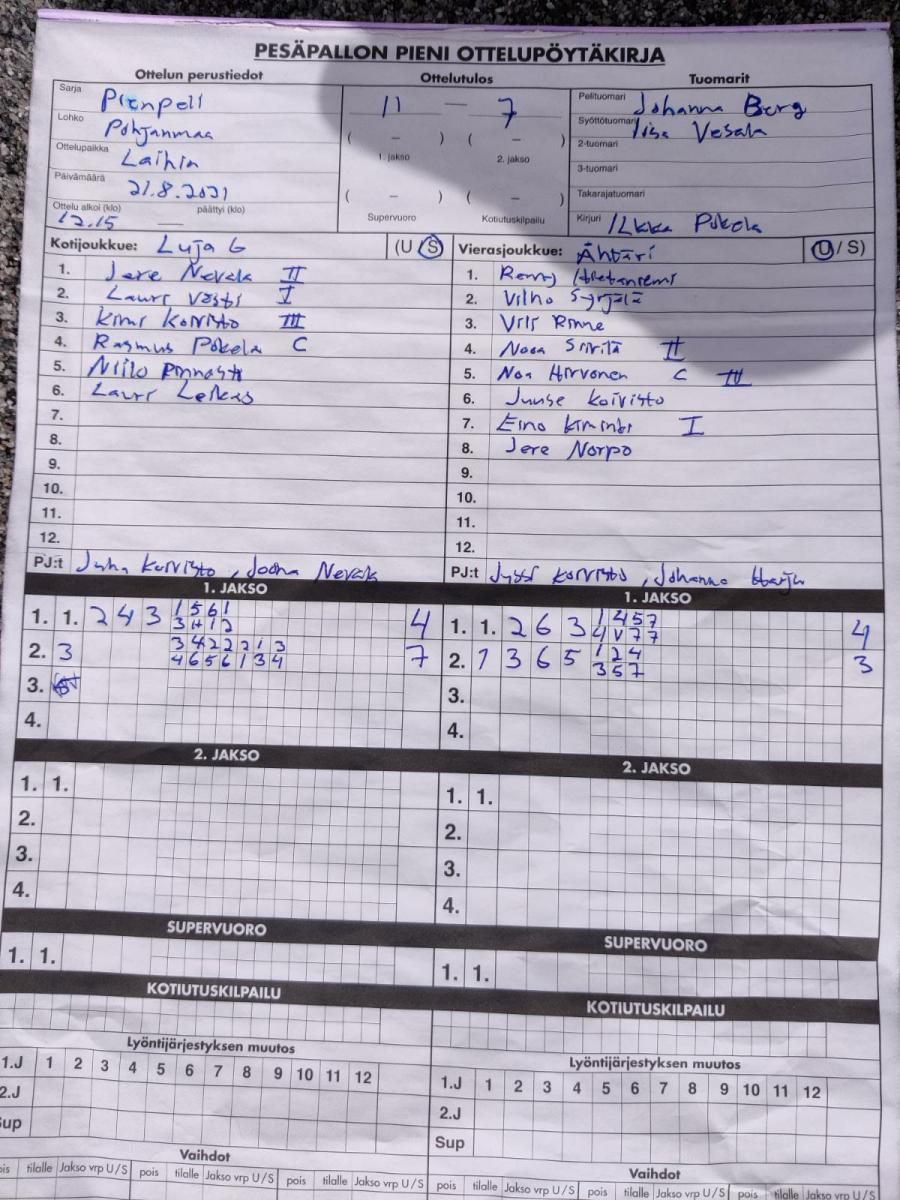 PESÄPALLON PIENI OTTELUPÖYTÄKIRJA
Ottelun perustiedot Ottelutulos Tuomarit
Sarja Pienpeli
Lohko Pohjanmaa
Ottelupaikka Laihia
Päivämäärä 21.8.2021
Ottelu alkoi (klo) 12.15 — päättyi (klo)
11 — 7
( – ) ( – )
1. jakso 2. jakso
( – ) ( – )
Supervuoro Kotiutuskilpailu
Pelituomari Johanna Berg
Syöttötuomari Iisa Vesala
2-tuomari
3-tuomari
Takarajatuomari
Kirjuri Ilkka Pokela
Kotijoukkue: Luja 6 (U S)
1. Jere Nevala II
2. Lauri Västi I
3. Kimi Koivisto III
4. Rasmus Pokela C
5. Niilo
6. Lauri Leikas
7.
8.
9.
10.
11.
12.
PJ:t Juha Koivisto, Joona Nevala
Vierasjoukkue: Ähtäri (U / S)
1. Remy
2. Vilho Syrjälä
3. Vili Rinne
4. Nooa Siirilä II
5. Noa Hirvonen C III
6. Juuse Koivisto
7. Eino I
8. Jere Norpo
9.
10.
11.
12.
PJ:t Jyssi Koivisto, Johanna Harju
1. JAKSO
1. 1. 2 4 3 1 5 6 1 4
3 H 1 2
2. 3 3 4 2 2 2 1 3 7
4 6 5 6 1 3 4
3.
4.
1. JAKSO
1. 1. 2 6 3 1 4 5 7 4
4 V 7 7
2. 1 3 6 5 1 2 4 3
3 5 7
3.
4.
2. JAKSO
1. 1.
2.
3.
4.
2. JAKSO
1. 1.
2.
3.
4.
SUPERVUORO
1. 1.
SUPERVUORO
1. 1.
KOTIUTUSKILPAILU
KOTIUTUSKILPAILU
Lyöntijärjestyksen muutos
1.J 1 2 3 4 5 6 7 8 9 10 11 12
2.J
Sup
Lyöntijärjestyksen muutos
1.J 1 2 3 4 5 6 7 8 9 10 11 12
2.J
Sup
Vaihdot
pois tilalle Jakso vrp U/S pois tilalle Jakso vrp U/S pois tilalle Jakso vrp U/S
Vaihdot
pois tilalle Jakso vrp U/S pois tilalle Jakso vrp U/S pois tilalle Jakso vrp U/S